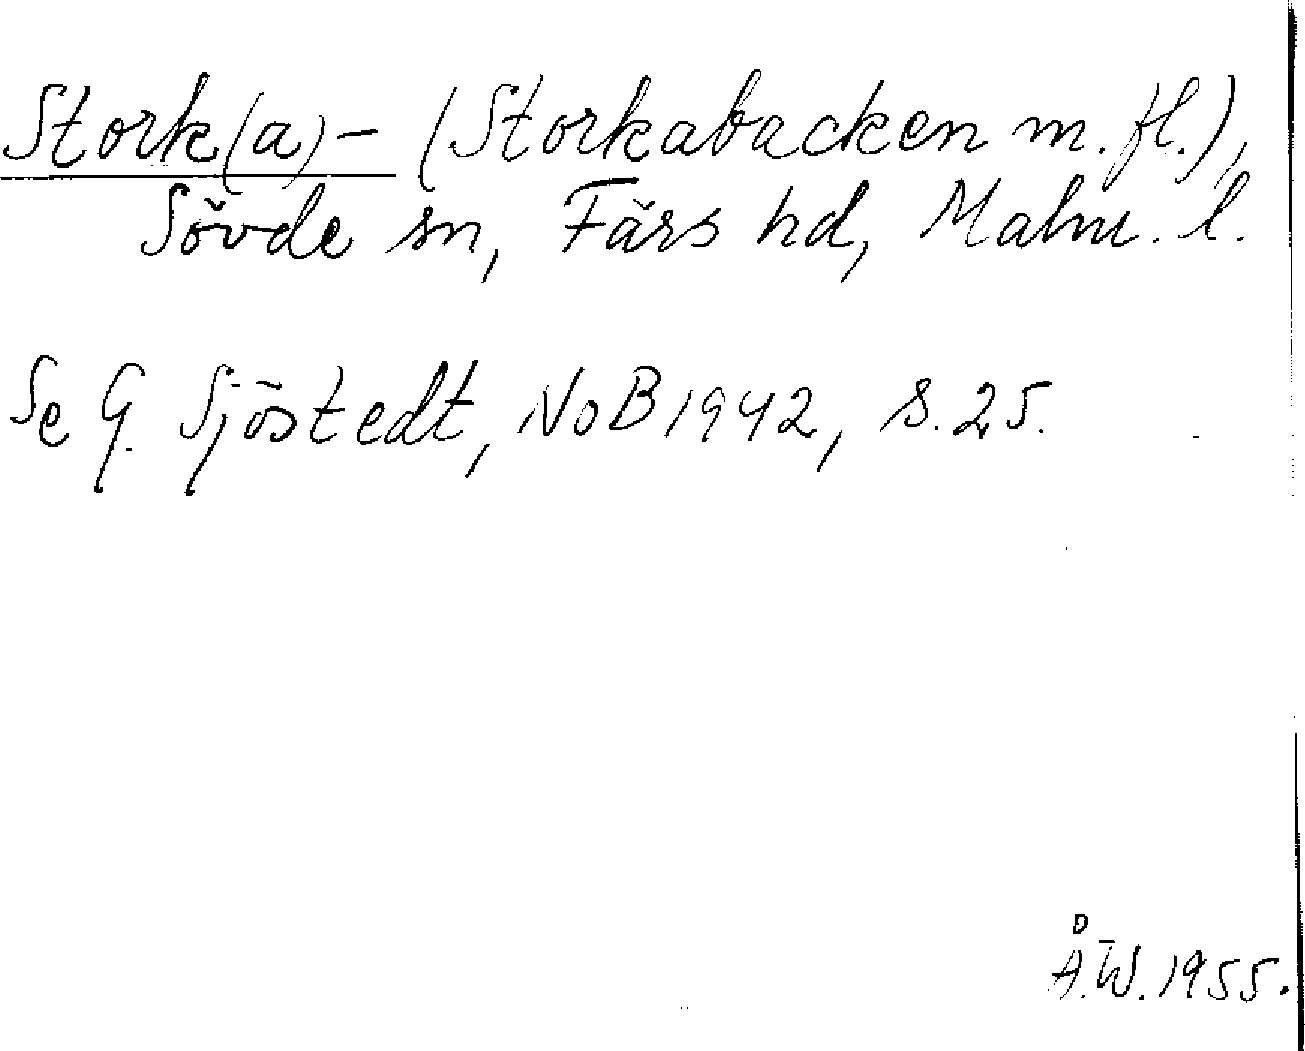 Stork(a)- (Storkabacken m. fl.),
Sövde sn, Färs hd, Malm. l.
Se G. Sjöstedt, NoB 1942, s. 25.
Å.W. 1955.